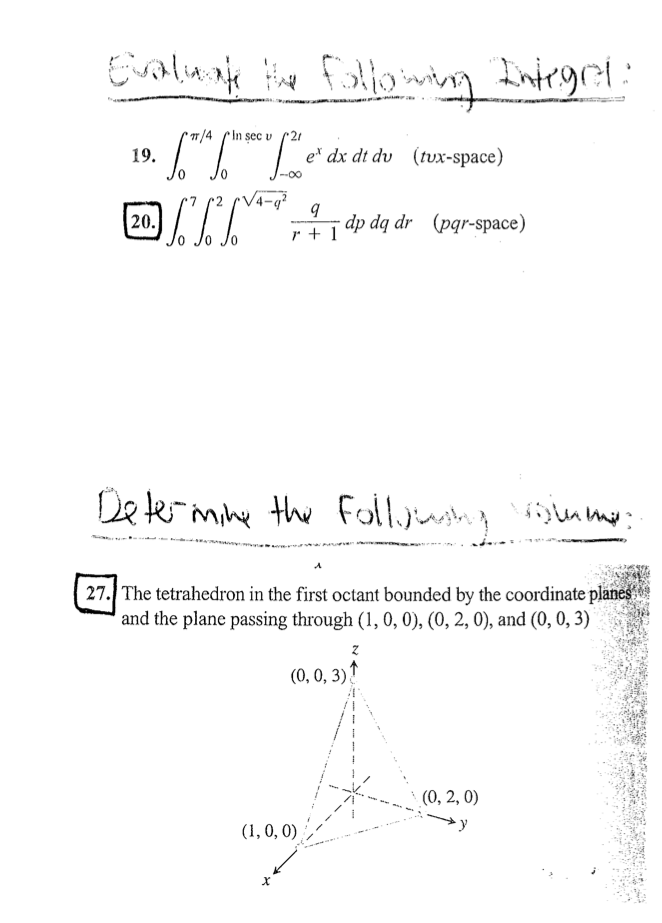 Evaluate the Following Integral:
19. ∫₀^{π/4} ∫₀^{ln sec v} ∫_{-∞}^{2t} eˣ dx dt dv (tvx-space)
20. ∫₀^{7} ∫₀^{2} ∫₀^{√(4-q²)} q/(r + 1) dp dq dr (pqr-space)
Determine the Following Volume:
27. The tetrahedron in the first octant bounded by the coordinate planes
and the plane passing through (1, 0, 0), (0, 2, 0), and (0, 0, 3)
z
(0, 0, 3)
(0, 2, 0)
y
(1, 0, 0)
x